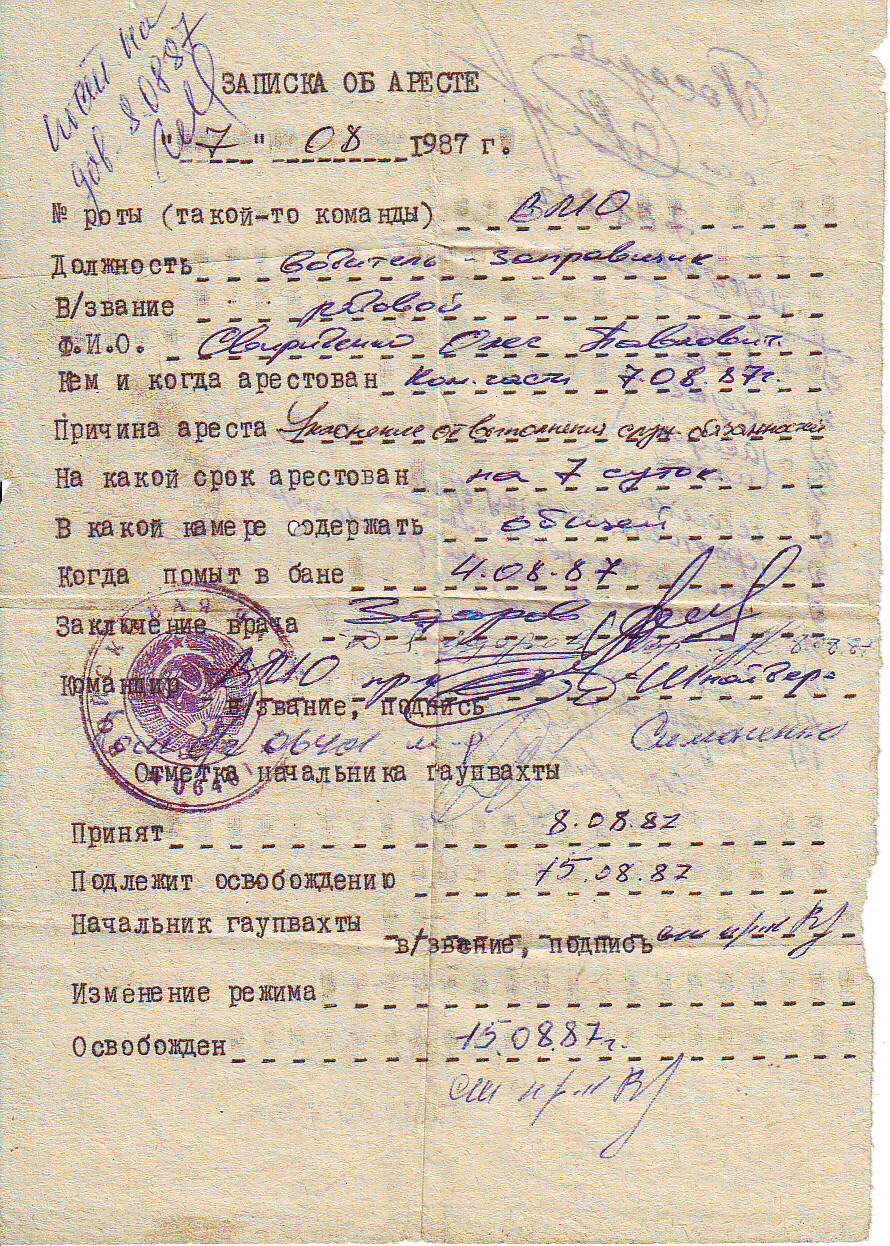 ЗАПИСКА ОБ АРЕСТЕ
"7" 08 1987 г.
№ роты (такой-то команды) ВМО
Должность водитель-заправщик
В/звание рядовой
Ф.И.О. Свириденко Олег Павлович
Кем и когда арестован Ком. части 7.08.87г.
Причина ареста Уклонение от выполнения служ. обязанностей
На какой срок арестован на 7 суток
В какой камере содержать общей
Когда помыт в бане 4.08.87
Заключение врача Здоров
8.08.87
Командир ВМО пр-к Шнайдер
в/звание, подпись
06401 м-р Симоненко
Отметка начальника гаупвахты
Принят 8.08.87
Подлежит освобождению 15.08.87
Начальник гаупвахты ст пр-к
в/звание, подпись
Изменение режима
Освобожден 15.08.87г.
ст пр-к